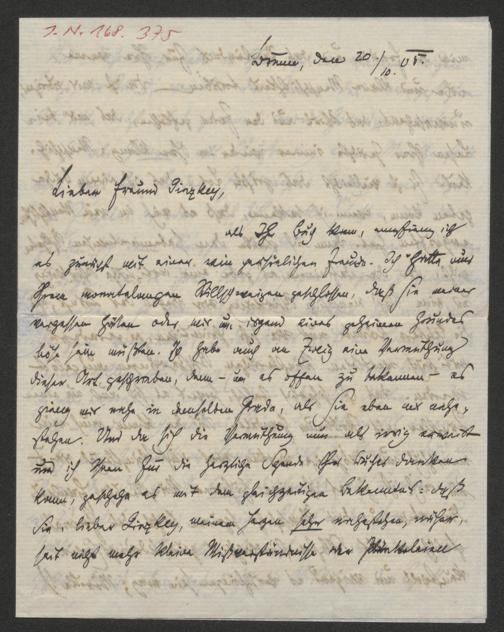 I. N. 168.375
Brünn, den 20./10. VI.
Lieber Freund Ginzkey,
als Ihr Buch kam, empfing ich
es zunächst mit einer rein persönlichen Freude. Ich hatte aus
Ihrem monatelangen Stillschweigen geschlossen, daß Sie meiner
vergessen hätten oder mir aus irgend eines geheimen Grundes
böse sein müßten. Ich habe auch an Zweig eine Vermuthung
dieser Art geschrieben, denn – um es offen zu bekennen – es
ging mir nahe in demselben Grade, als Sie eben mir nahe
stehen. Und da sich die Vermuthung nun als irrig erweist
und ich Ihnen für die herzliche Spende Ihres Buches danken
kann, geschehe es mit dem gleichzeitigen Bekenntnis: daß
Sie, lieber Ginzkey, meinem Herzen sehr nahestehen, näher,
seit nicht mehr kleine Mißverständnisse oder